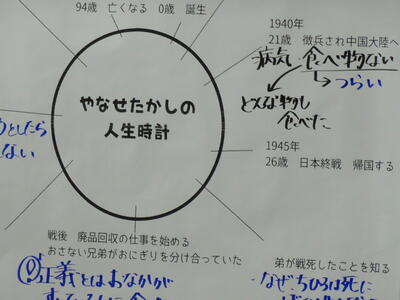 94歳 亡くなる 0歳 誕生
1940年
21歳 徴兵され中国大陸へ
病気 食べ物ない
つらい
どんな物も
食べた
やなせたかしの
人生時計
1945年
26歳 日本終戦 帰国する
うとしたら
ない
戦後 廃品回収の仕事を始める
おさない兄弟がおにぎりを分け合っていた
正義とはおなかが
弟が戦死したことを知る
なぜちひろは死に